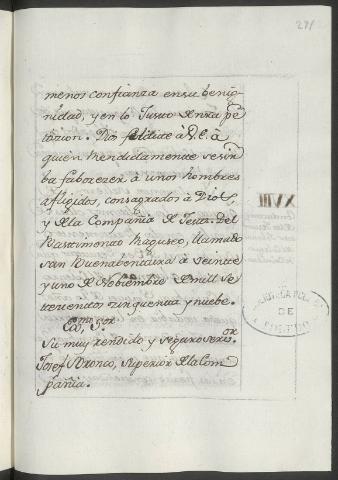 291
menos confianza en su benig-
nidad, y en lo Justo de nra pe
tizion. Dios felicite à V.E. à
quien rendidamente se sir
ba faborezer à unos hombres
afligidos, consagrados à Dios,
y de la Compañia de Jesus. Del
llamado
San Buenabentura à Veinte
y uno de Nobiembre de mill se
tezientos zinquenta y nuebe.
Exmo. Sor.
Su muy rendido y seguro servor.
Josef Bronco, Superior de la Com
pañia.
XVIII
DE
TOLEDO